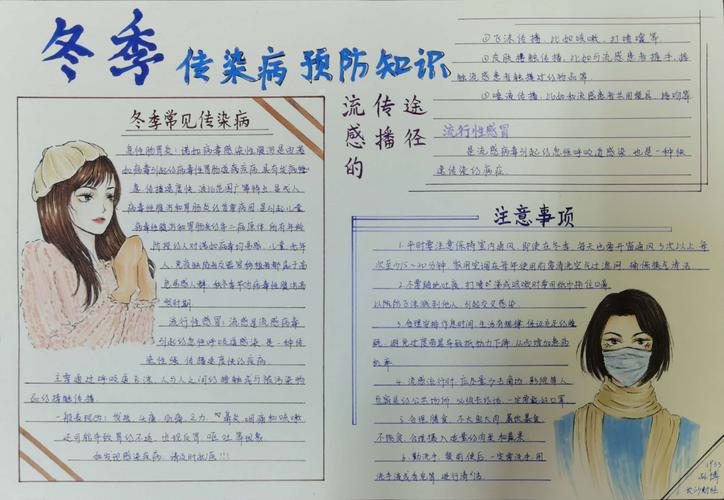 冬季传染病预防知识
冬季常见传染病
急性肠胃炎：诺如病毒感染性腹泻是由诺
如病毒引起的病毒性胃肠道疾病,具有发病
急、传播速度快、波及范围广等特点,是成人
病毒性腹泻和胃肠炎的首要病因,是引起儿童
病毒性腹泻和胃肠炎的第二病原体,所有年龄
阶段的人对诺如病毒均易感,儿童、老年
人、免疫缺陷者及器官移植者都属于高
危易感人群,秋冬季节为病毒性腹泻高
发时期
流行性感冒：流感是流感病毒
引起的急性呼吸道感染,是一种传
染性强、传播速度快的疾病.
主要通过呼吸道飞沫、人与人之间的接触或与被污染物
品的接触传播.
一般表现为：发热、头痛、肌痛、乏力、鼻炎、咽痛和咳嗽
还可能导致胃的不适,出现反胃、呕吐等现象
如发现感染疾病,请及时就医!!!
流感的
传播
途径
①飞沫传播,比如咳嗽、打喷嚏等.
②皮肤接触传播,比如与流感患者握手、接
触流感患者触摸过的物品等.
③唾液传播,比如和流感患者共用餐具、接吻等
流行性感冒
是流感病毒引起的急性呼吸道感染,也是一种快
速传染的疾病.
注意事项
1.平时要注意保持室内通风,即使在冬季,每天也需开窗通风3次以上,每
次至少15~20分钟,家用空调在每年使用前需清洗空气过滤网,确保换气清洁.
2.不要随地吐痰,打喷嚏或咳嗽时要用纸巾捂住口鼻
以防防飞沫溅到他人,引起交叉感染.
3.合理安排作息时间,生活有规律,保证充足的睡
眠,避免过度劳累导致抵抗力下降,从而增加患病
机率.
4.流感流行时,应尽量少去商场、影院等人
员密集的公共场所,必须去的话,一定要戴好口罩
5.合理膳食,不大鱼大肉、暴饮暴食、
不挑食,合理摄入适量的肉类和蔬果.
6.勤洗手,餐前便后,一定需洗手,用
洗手液或香皂等,进行清洁